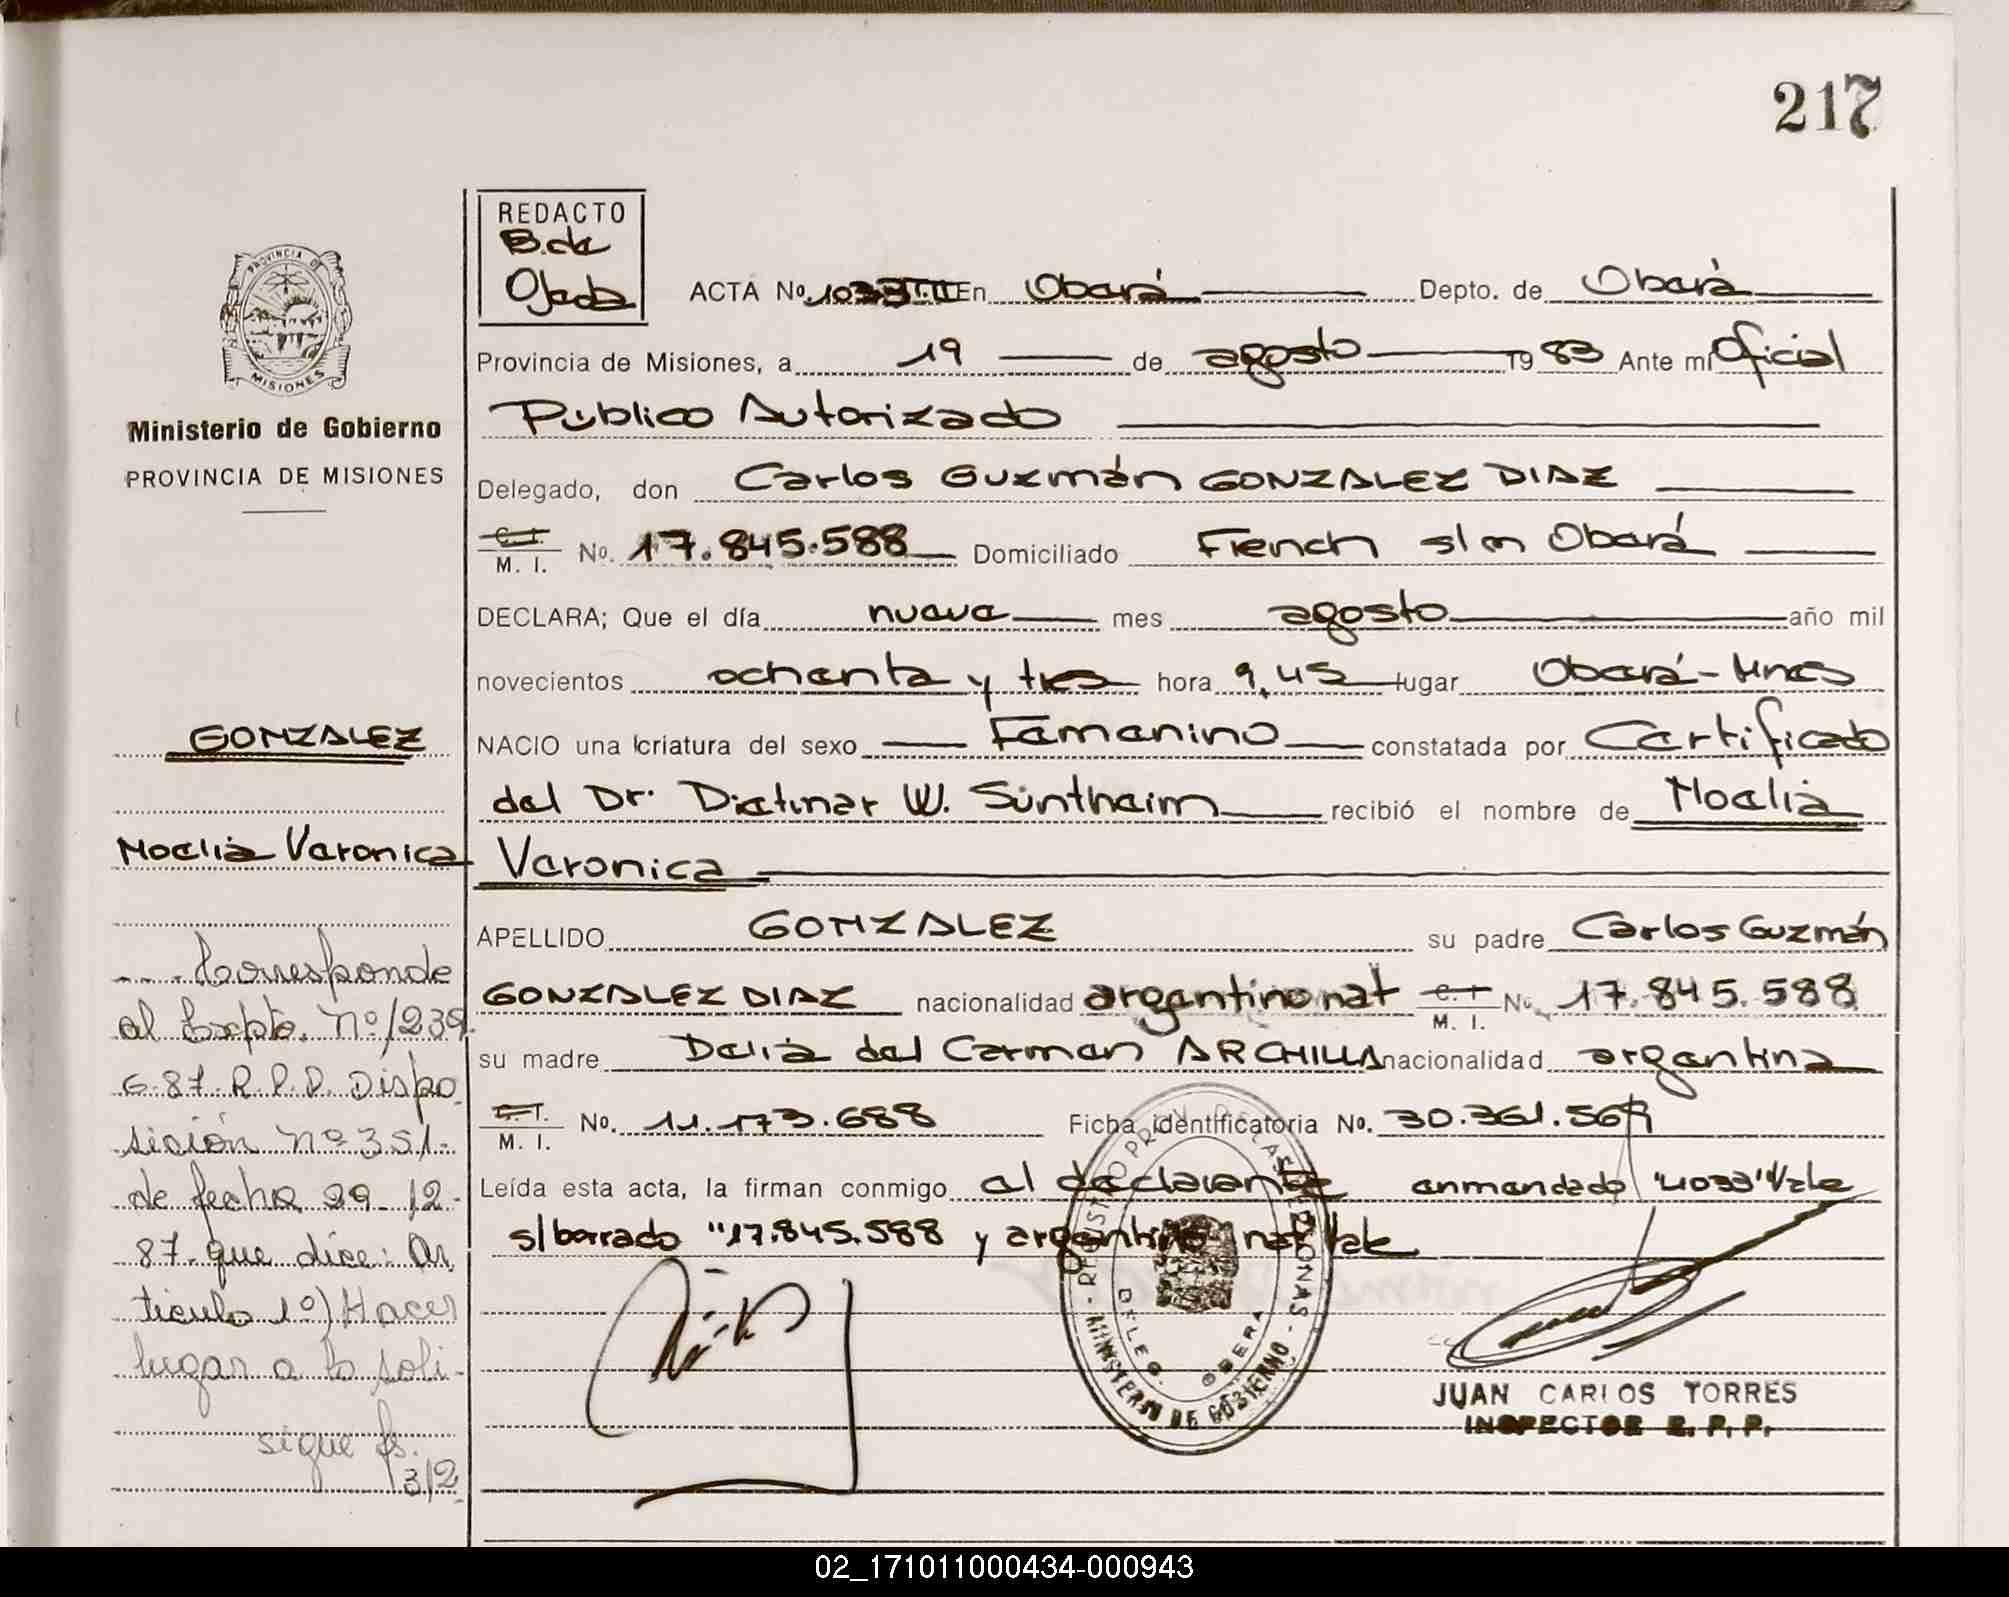 217
REDACTO
B. de
Ojeda
PROVINCIA DE
MISIONES
Ministerio de Gobierno
PROVINCIA DE MISIONES
ACTA No. 1033 En Oberá Depto. de Oberá
Provincia de Misiones, a 19 de agosto 1983 Ante mí Oficial
Público Autorizado
Delegado, don Carlos Guzmán GONZALEZ DIAZ
C. I. M. I. No. 17.845.588 Domiciliado French s/n Oberá
DECLARA; Que el día nueve mes agosto año mil
novecientos ochenta y tres hora 9,45 lugar Oberá - Mnes
NACIO una criatura del sexo Femenino constatada por Certificado
del Dr. Dietmar W. Süntheim recibió el nombre de Noelia
Veronica
APELLIDO GONZALEZ su padre Carlos Guzmán
GONZALEZ DIAZ nacionalidad argentino nat C. I. M. I. No. 17.845.588
su madre Delia del Carmen ARCHILLA nacionalidad argentina
C. I. M. I. No. 11.173.688 Ficha identificatoria No. 30.361.569
Leída esta acta, la firman conmigo el declarante enmendado "1033" Vale
s/borrado "17.845.588 y argentino nat Vale
GONZALEZ
Noelia Veronica
Corresponde
al Expte. Nº 1239
G-87-R.P.P. Dispo
sición Nº 351-
de fecha 29-12-
87- que dice: Ar
ticulo 1º) Hacer
lugar a la soli-
sigue fs.
312
REGISTRO PROV. DE LAS PERSONAS
DELEG. OBERA
MINISTERIO DE GOBIERNO
JUAN CARLOS TORRES
INSPECTOR R. P. P.
02_171011000434-000943